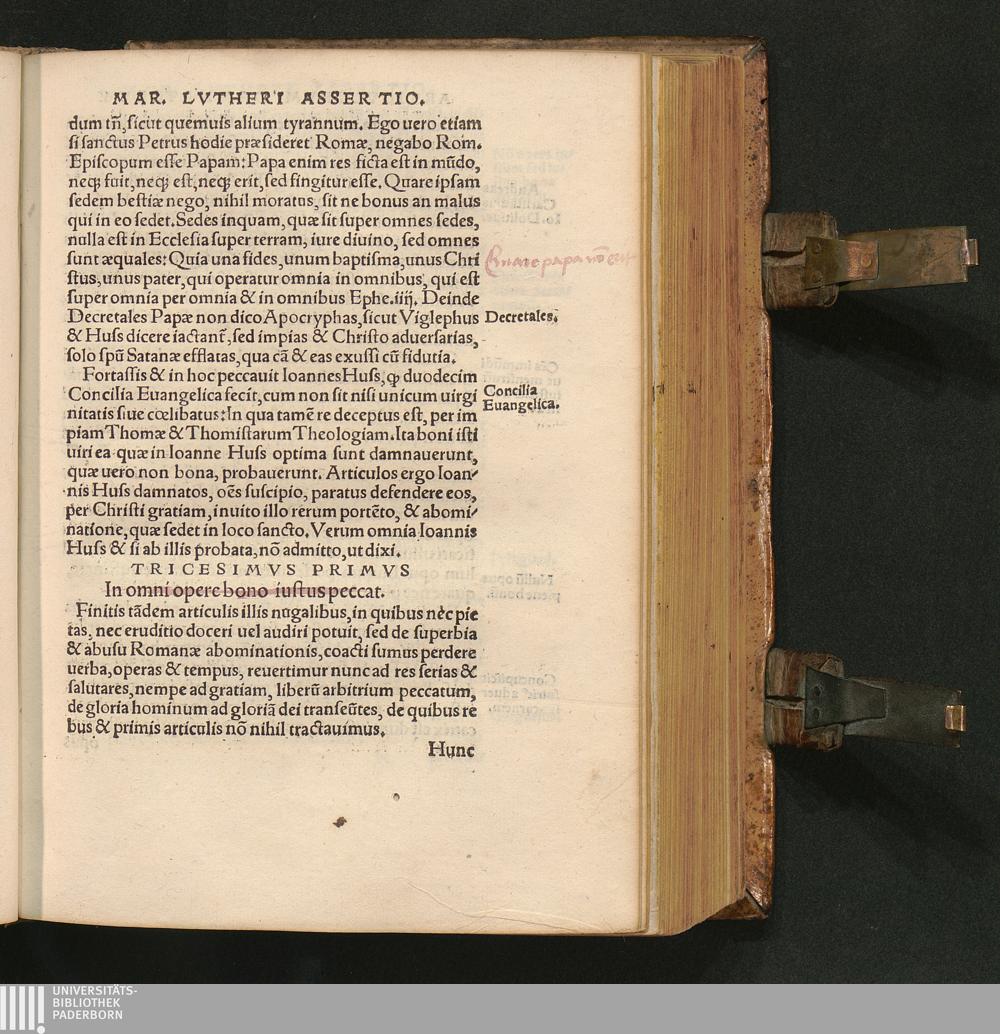 MAR. LVTHERI ASSERTIO.
dum tñ, sicut quemuis alium tyrannum. Ego uero etiam
si sanctus Petrus hodie præsideret Romæ, negabo Rom.
Episcopum esse Papam: Papa enim res ficta est in mūdo,
neqꝫ fuit, neqꝫ est, neqꝫ erit, sed fingitur esse. Quare ipsam
sedem bestiæ nego, nihil moratus, sit ne bonus an malus
qui in eo sedet. Sedes inquam, quæ sit super omnes sedes,
nulla est in Ecclesia super terram, iure diuino, sed omnes
sunt æquales: Quia una fides, unum baptisma, unus Chri
stus, unus pater, qui operatur omnia in omnibus, qui est
super omnia per omnia & in omnibus Ephe. iiij. Deinde
Decretales Papæ non dico Apocryphas, sicut Viglephus
& Huss dicere iactant̄, sed impias & Christo aduersarias,
solo spū Satanæ efflatas, qua cā & eas exussi cū fidutia.
Fortassis & in hoc peccauit Ioannes Huss, ꝙ duodecim
Concilia Euangelica fecit, cum non sit nisi unicum uirgi
nitatis siue cœlibatus: In qua tamē re deceptus est, per im
piam Thomæ & Thomistarum Theologiam. Ita boni isti
uiri ea quæ in Ioanne Huss optima sunt damnauerunt,
quæ uero non bona, probauerunt. Articulos ergo Ioan-
nis Huss damnatos, oēs suscipio, paratus defendere eos,
per Christi gratiam, inuito illo rerum portēto, & abomi-
natione, quæ sedet in loco sancto. Verum omnia Ioannis
Huss & si ab illis probata, nō admitto, ut dixi.
TRICESIMVS PRIMVS
In omni opere bono iustus peccat.
Finitis tādem articulis illis nugalibus, in quibus nec pie
tas, nec eruditio doceri uel audiri potuit, sed de superbia
& abusu Romanæ abominationis, coacti sumus perdere
uerba, operas & tempus, reuertimur nunc ad res serias &
salutares, nempe ad gratiam, liberū arbitrium peccatum,
de gloria hominum ad gloriā dei transeūtes, de quibus re
bus & primis articulis nō nihil tractauimus.
Hunc
Quare papa nō erit
Decretales.
Concilia
Euangelica.
UNIVERSITÄTS-
BIBLIOTHEK
PADERBORN